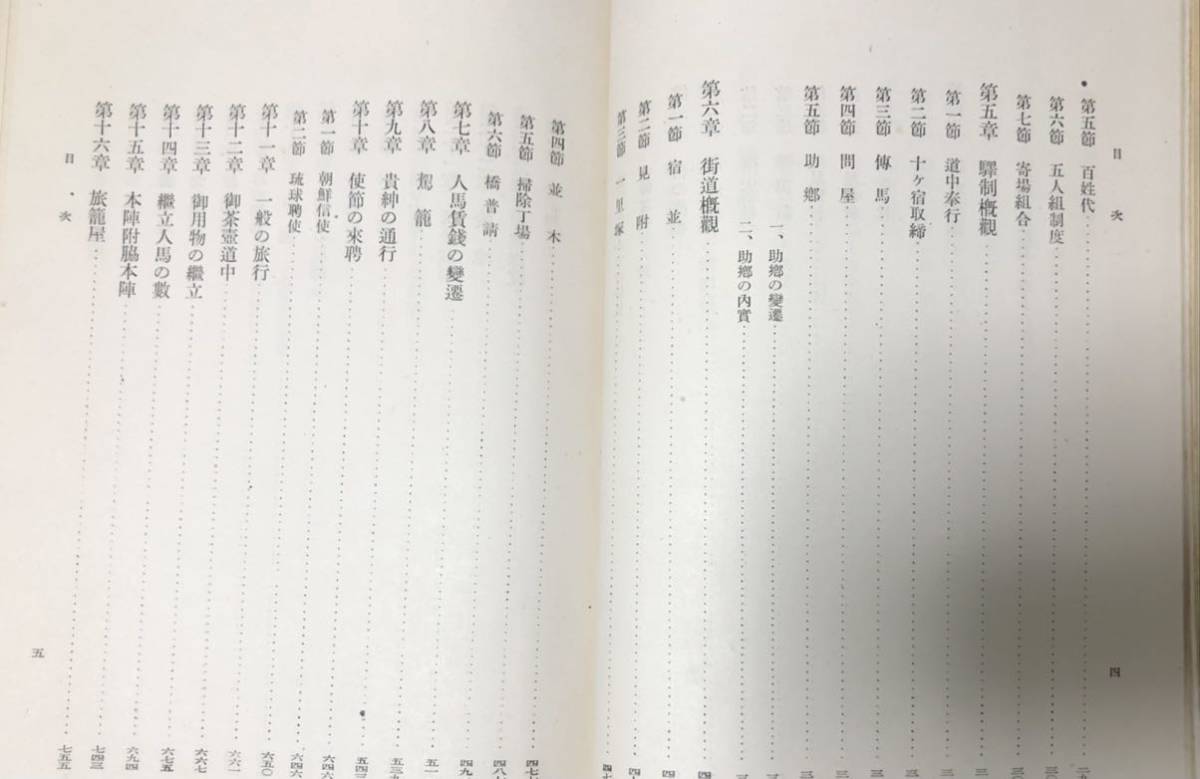 目次
四
第五節 百姓代
第六節 五人組制度
第七節 寄場組合
第五章 驛制概觀
第一節 道中奉行
第二節 十ケ宿取締
第三節 傳馬
第四節 問屋
第五節 助鄉
一、助鄉の變遷
二、助鄉の內實
第六章 街道概觀
第一節 宿並
第二節 見附
第三節 一里塚
第四節 並木
第五節 掃除丁場
第六節 橋普請
第七章 人馬賃錢の變遷
第八章 駕籠
第九章 貴紳の通行
第十章 使節の來聘
第一節 朝鮮信使 六四六
第二節 琉球聘使 六五〇
第十一章 一般の旅行 六六一
第十二章 御茶壺道中 六六七
第十三章 御用物の繼立 六七五
第十四章 繼立人馬の數 六九四
第十五章 本陣附脇本陣 七四三
第十六章 旅籠屋 七五五
目次
五